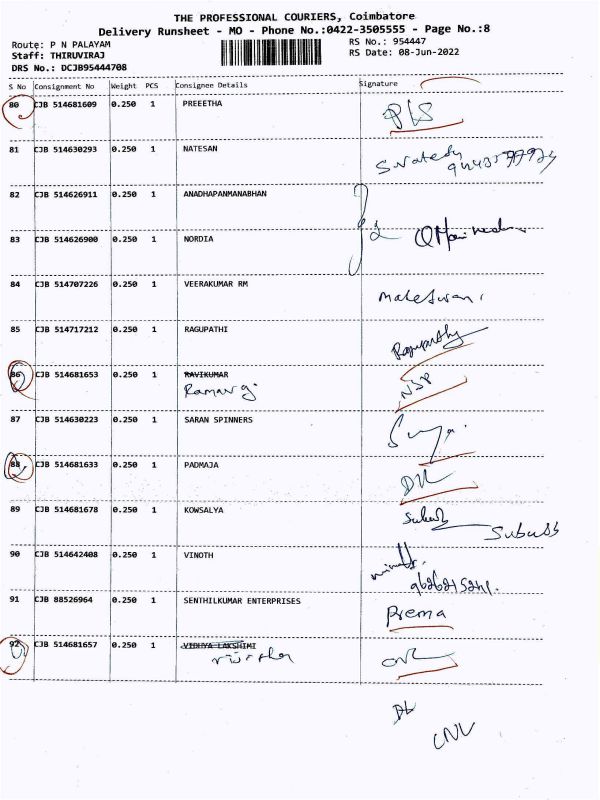 THE PROFESSIONAL COURIERS, Coimbatore
Delivery Runsheet - MO - Phone No.:0422-3505555 - Page No.:8
Route: P N PALAYAM
RS No.: 954447
Staff: THIRUVIRAJ
RS Date: 08-Jun-2022
DRS No.: DCJB95444708
S No Consignment No Weight PCS Consignee Details Signature
80 CJB 514681609 0.250 1 PREEETHA
81 CJB 514630293 0.250 1 NATESAN
82 CJB 514626911 0.250 1 ANADHAPANMANABHAN
83 CJB 514626900 0.250 1 NORDIA
84 CJB 514707226 0.250 1 VEERAKUMAR RM
85 CJB 514717212 0.250 1 RAGUPATHI
86 CJB 514681653 0.250 1 RAVIKUMAR
87 CJB 514630223 0.250 1 SARAN SPINNERS
88 CJB 514681633 0.250 1 PADMAJA
89 CJB 514681678 0.250 1 KOWSALYA
90 CJB 514642408 0.250 1 VINOTH
9626215241.
91 CJB 88526964 0.250 1 SENTHILKUMAR ENTERPRISES Prema
92 CJB 514681657 0.250 1 VIDHYA LAKSHIMI